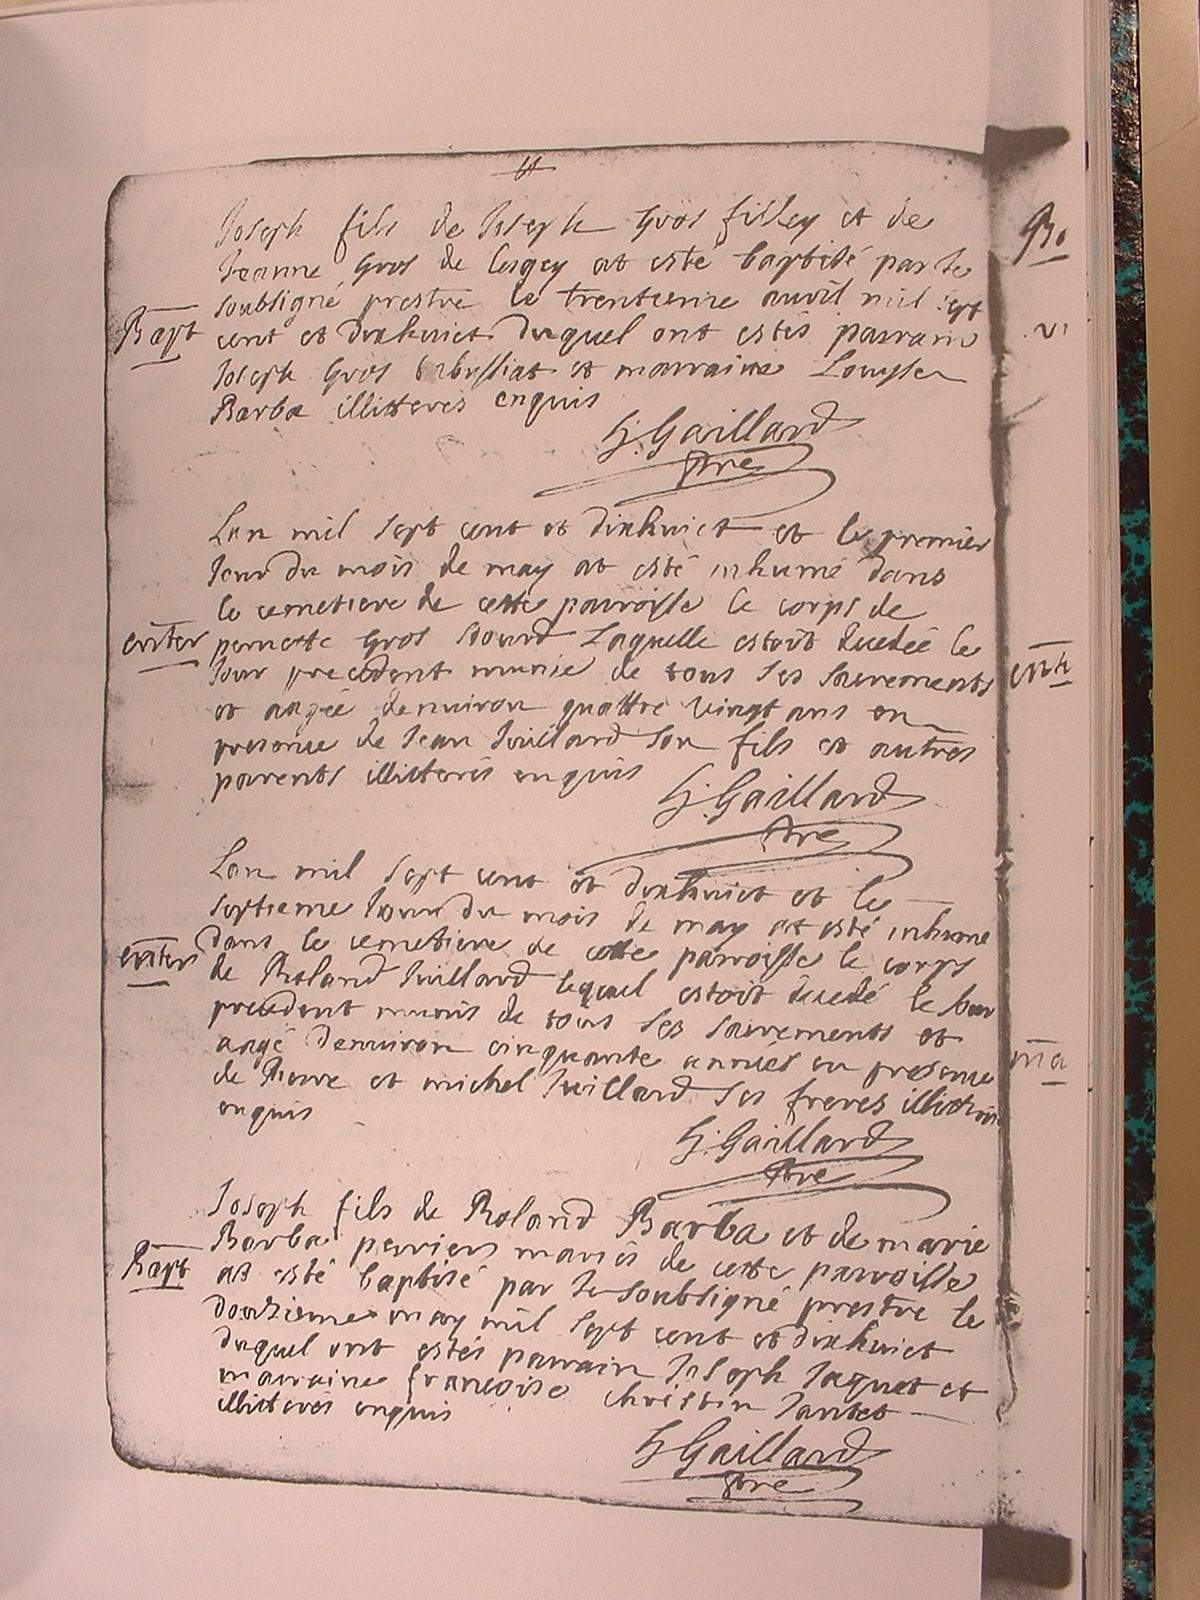 Joseph fils de Joseph Gros filley et de
Jeanne Gros de at esté baptisé par le
soubsigné prestre le trentieme avvil mil sept
Bapt
cent et dixhuict duquel ont estés parrain
Joseph Gros et marraine Louyse
Barba illitteres enquis
G. Gaillard
Pre
Lan mil sept cent et dixhuict et le premier
Jour du mois de may at esté inhumé dans
le cemetiere de cette parroisse le corps de
enter
pernette Gros laquelle estoit decedée le
Jour precedent munie de tous ses sacrements
et aagée denuiron quattre vingt ans en
presence de Jean Juillard son fils et autres
parents illitterés enquis
G. Gaillard
Pre
Lan mil sept cent et dixhuict et le
septieme Jour du mois de may at esté inhumé
enter
dans le cemetiere de cette parroisse le corps
de Roland Juillard lequel estoit decedé le Jour
precedent munis de tous ses sacrements et
aagé denuiron cinquante annees en presence
de Pierre et michel Juillard ses freres
enquis
G. Gaillard
Pre
Joseph fils de Roland Barba et de marie
Barba mariés de cette parroisse
Bapt
at esté baptisé par le soubsigné prestre le
douzieme may mil sept cent et dixhuict
duquel ont estés parrain Joseph Jaquet et
marraine francoise christin
illitterés enquis
G Gaillard
Pre